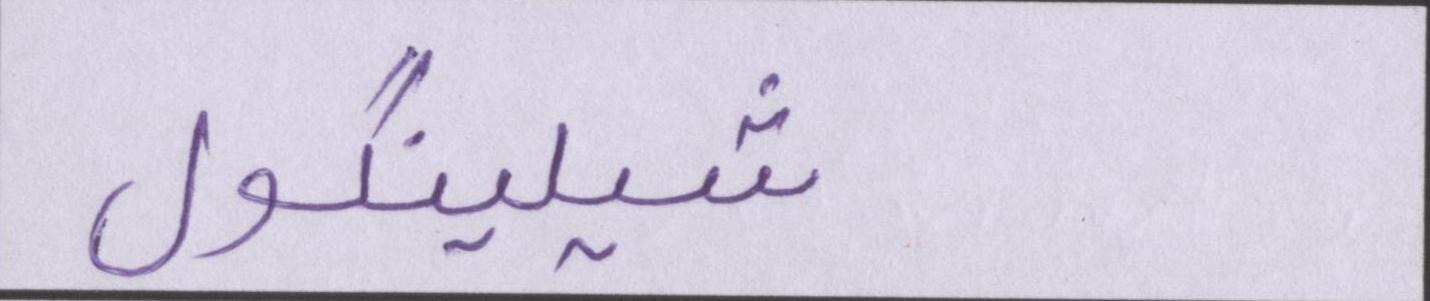 شیلینگول